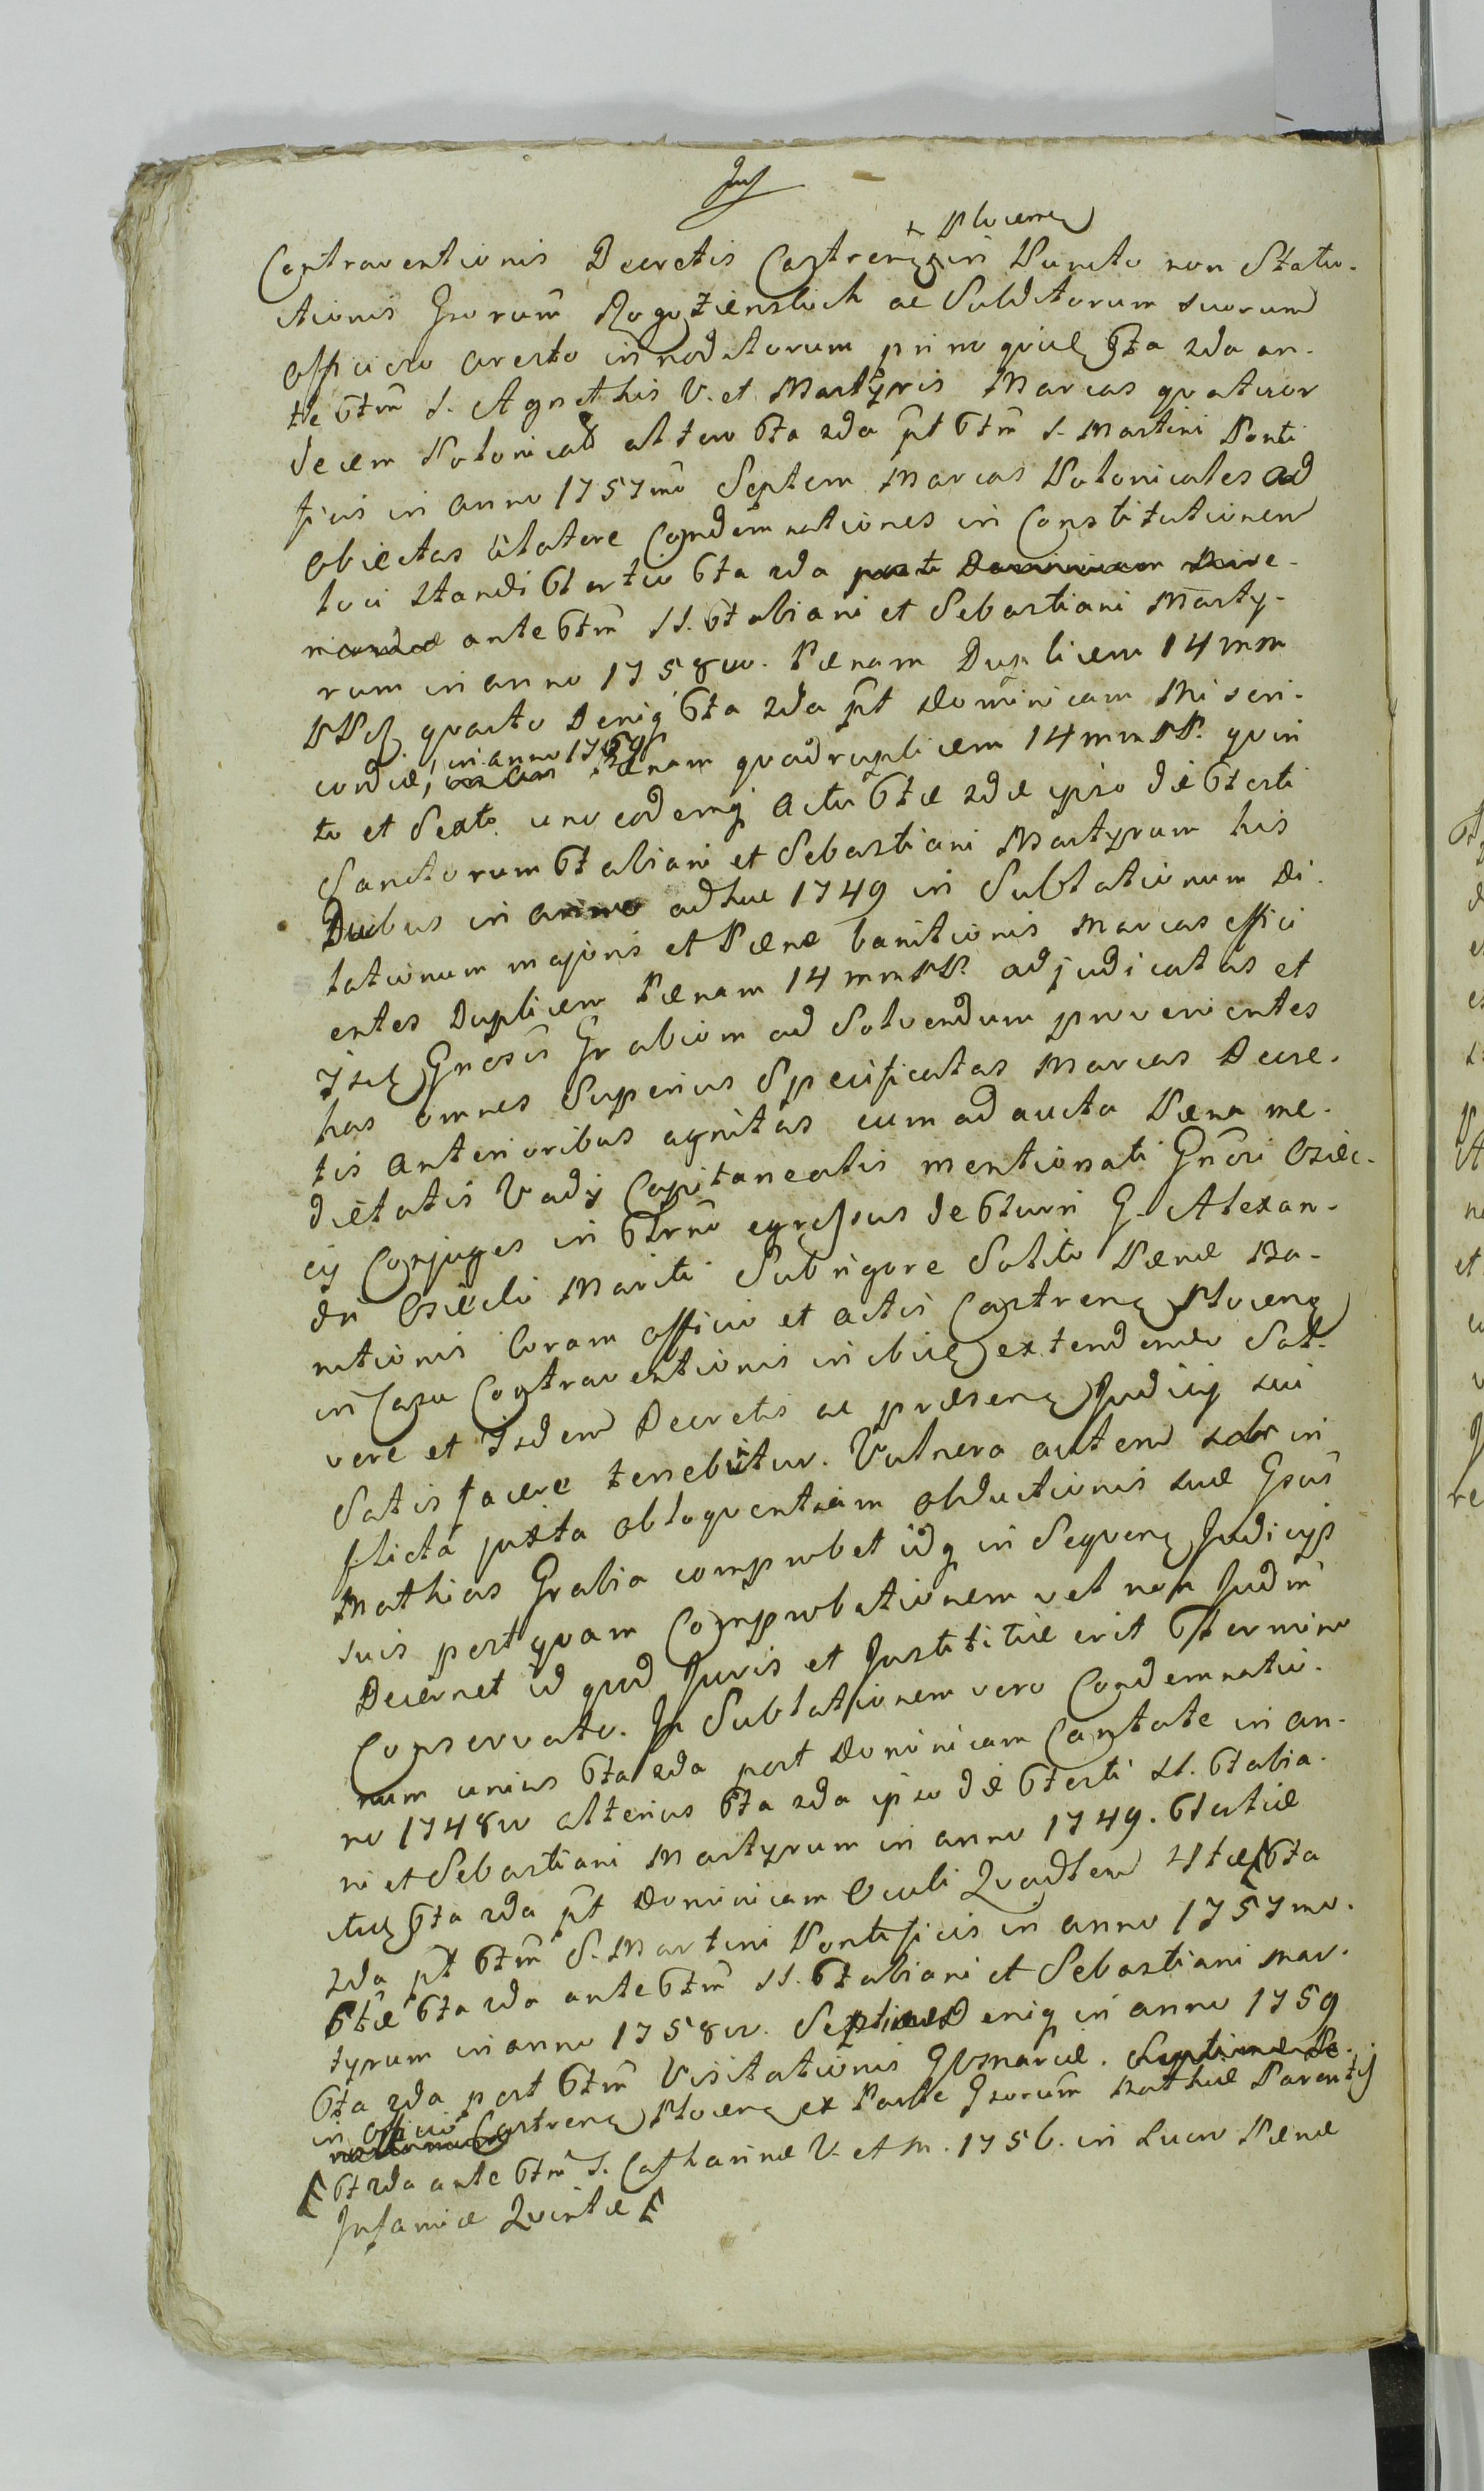 Contraventionis Decretis Castrens in Puncto non Statu-
+ Plocens
itionis Gsorum Rogozienskich ac Subditorum suorum
officioso aresto innodatorum primo quidem Fta 2da an-
te Ftm S. Agnethis V. et Martyris Marcas quatuor
decem Polonicales altero Fta 2da pt Ftm S. Martini Ponti
ficis in anno 1757mo Septem Marcas Polonicales ad
obiectas citatore Condemnationes in Constitutionem
loci standi tertio Fta 2da post Dominicam
ante Ftm SS. Fabiani et Sebastiani Marty-
rum in anno 1758vo. Paenam Duplicem 14 mm
PP. quarto Deniq Fta 2da pt Dominicam Miseri-
cordiae, in anno 1759 Paenam quadruplicem 14 mm PP. quin
to et Sexto uno eodemq Actu Ftae 2dae ipso die Festi
Sanctorum Fabiani et Sebastiani Martyrum his
Duobus in anno adhuc 1749 in Sublationum Di-
lationum majoris et Paenae banitionis Marcas effici
entes Duplicem Paenam 14 mm PP. adjudicatas et
Gnosis Grabiom ad Solvendum provenientes
has omnes Superius Specificatas Marcas Decre-
tis Anterioribus agnitas cum adaucta Paena me-
dietatis Vadij Capitanealis mentionati Gnosi Osiec-
cij Conjuges in Ftrno egressus de Turri G. Alexan-
dri Osiecki Mariti Sub rigore Solito Paenae Ba-
nitionis Coram officio et actis Castrens Plocens
in Casu Contraventionis inibi extendendo Sol-
vere et Isdem Decretis ac praesens Judicij sui
Satisfacere tenebitur. Vulnera autem in
flicta juxta obloquentiam obductionis suae Gsus
Mathias Grabia comprobet idq in Sequens Judicijs
suis post quam Comprobationem vel non Judm
Decernet id quod Juris et Justititiae erit Termino
Conservato. In Sublationem vero Condemnatio-
num unius Fta 2da post Dominicam Cantate in an-
no 1748vo alterius Fta 2da ipso die Festi SS. Fabia-
ni et Sebastiani Martyrum in anno 1749. Tertiae
Fta 2da pt Dominicam Oculi Quadlem 4tae Fta
2da pt Ftm S. Martini Pontificis in anno 1757mo.
6tae Fta 2da ante Ftm SS. Fabiani et Sebastiani Mar-
tyrum in anno 1758vo. Septimae Deniq in anno 1759
Fta 2da post Ftm Visitationis Mariae. Septimae De-
in officio Castrens Plocens ex Parte Gsorum Parentis
Ft 2da ante Ftm S. Catharinae V. et M. 1756. in Lucro Paenae
Infamiae Quintae